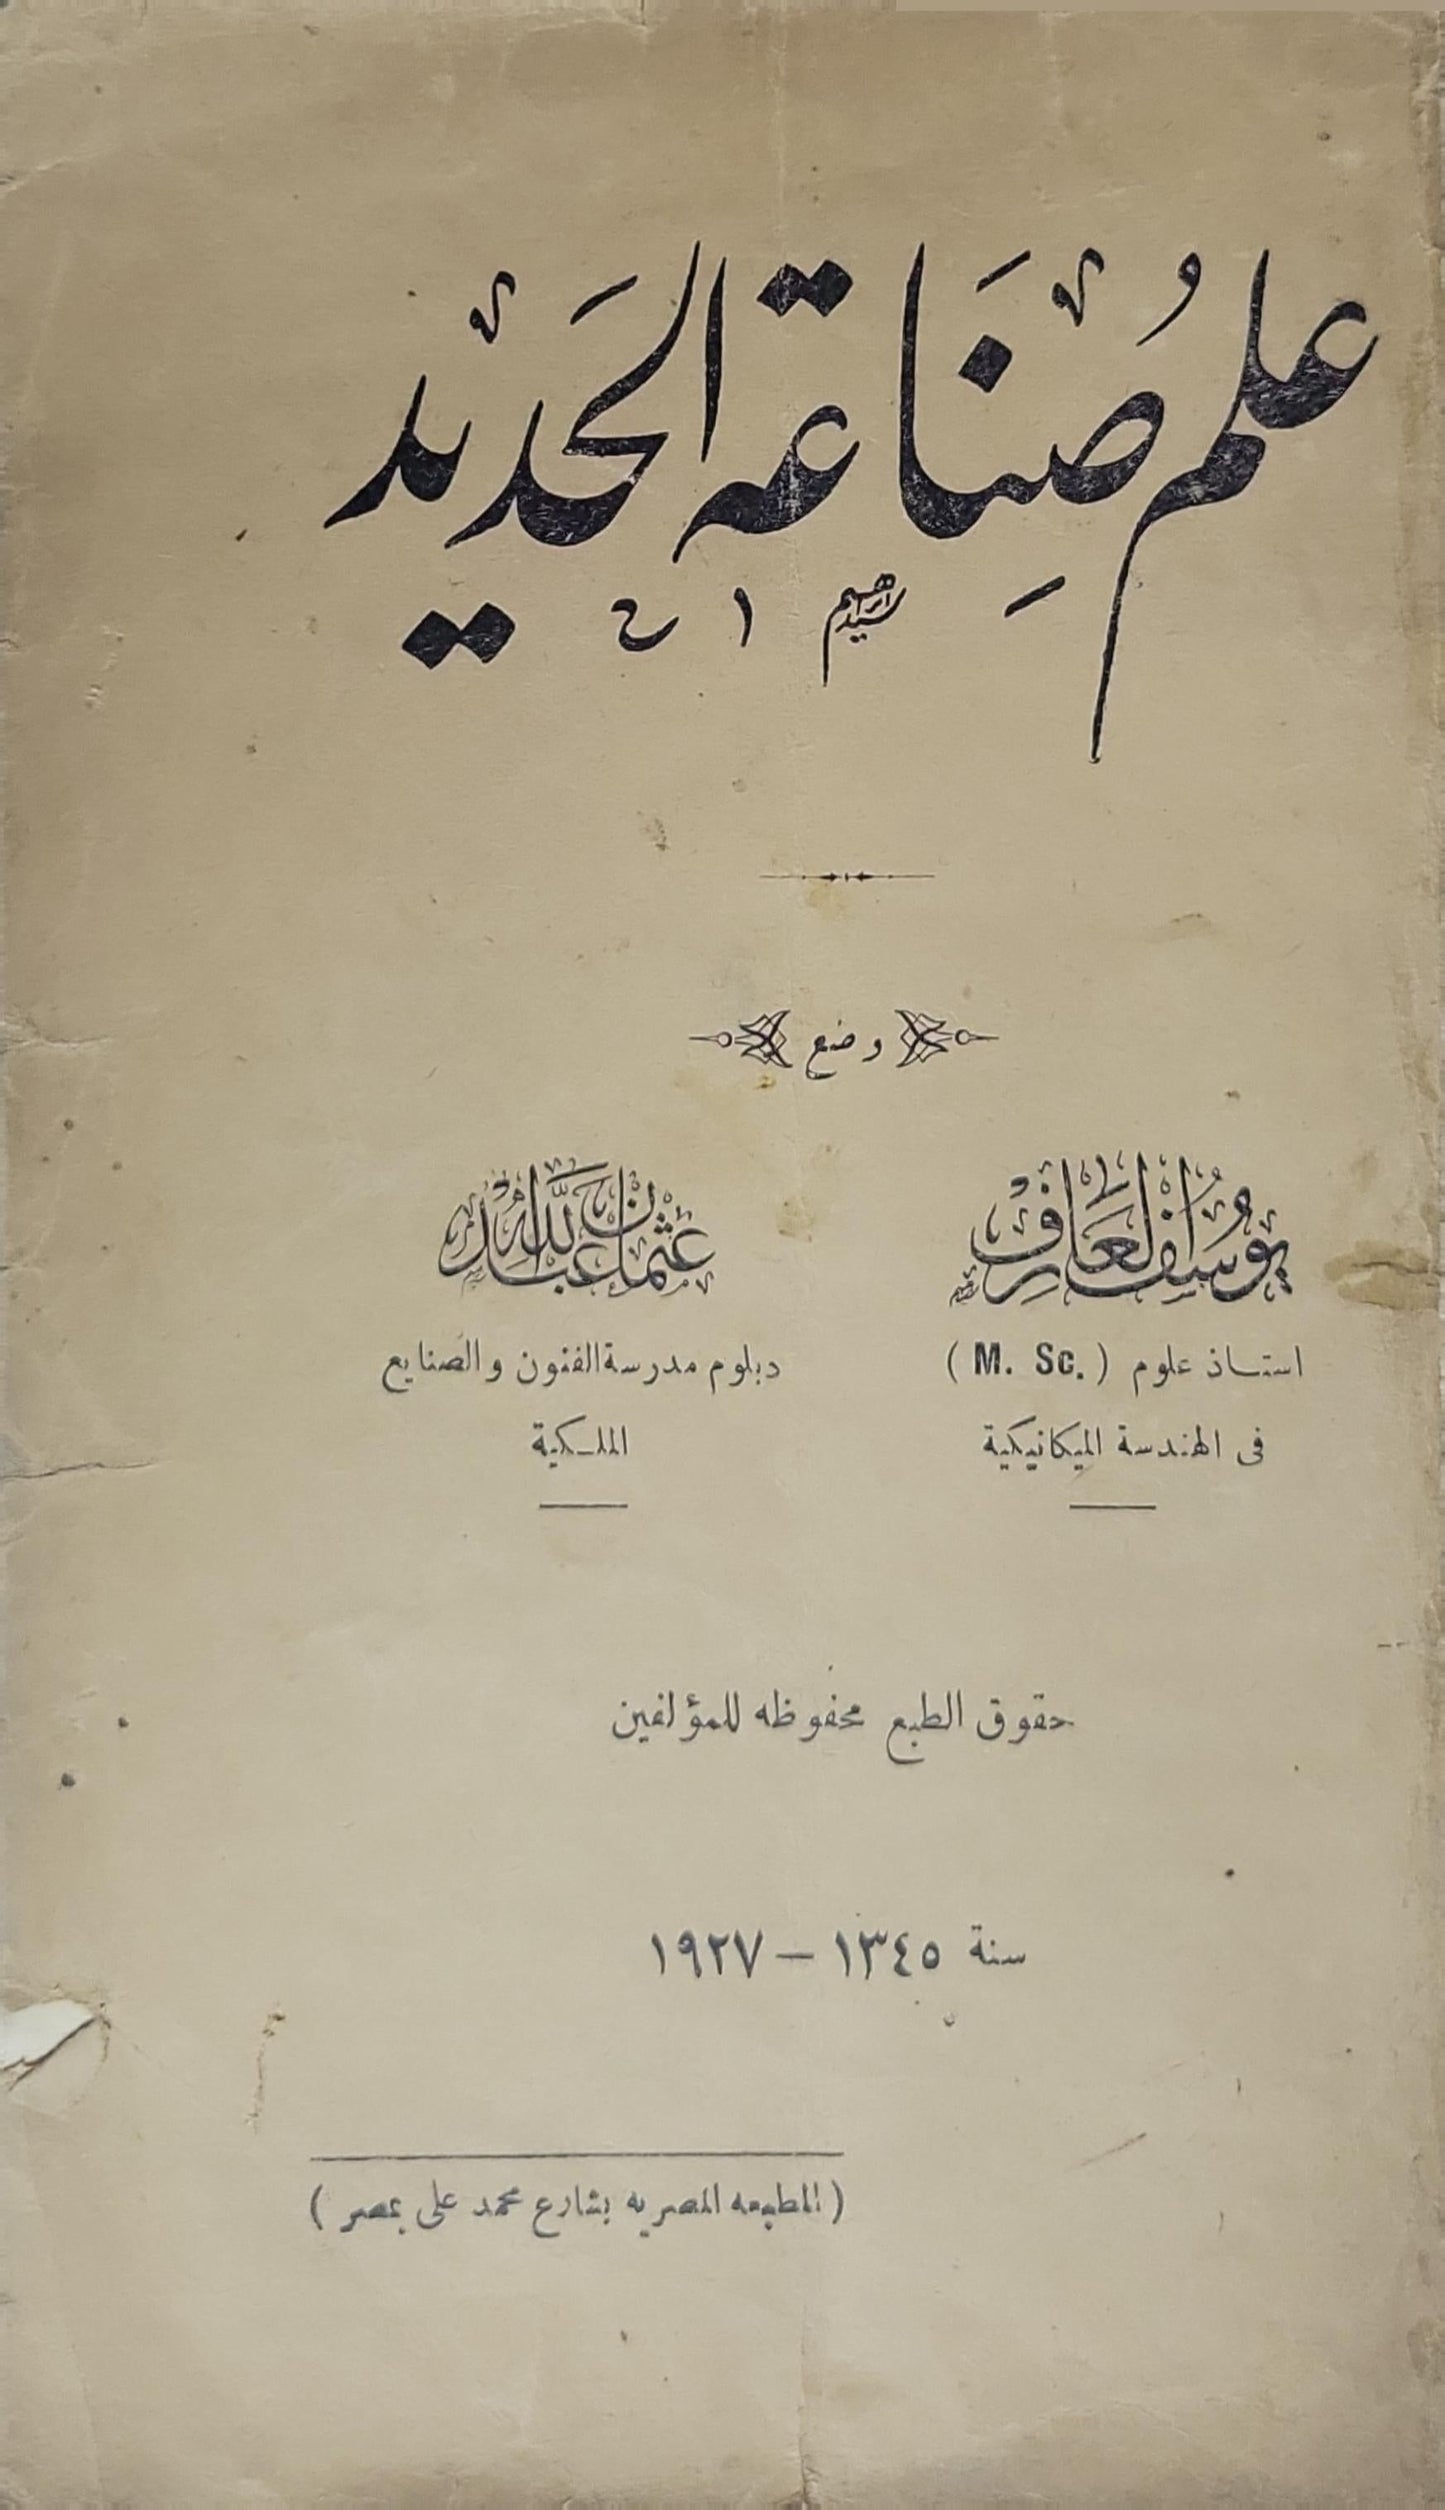 علمُ صِنَاعة الحَديد
سيد ابراهيم ١ ح
وضع
يوسف العارف
استاذ علوم (M. Sc.)
فى الهندسة الميكانيكية
عثمان عبد الله
دبلوم مدرسة الفنون والصنايع
الملكية
حقوق الطبع محفوظه للمؤلفين
سنة ١٣٤٥ — ١٩٢٧
(المطبعه المصريه بشارع محمد على بمصر)